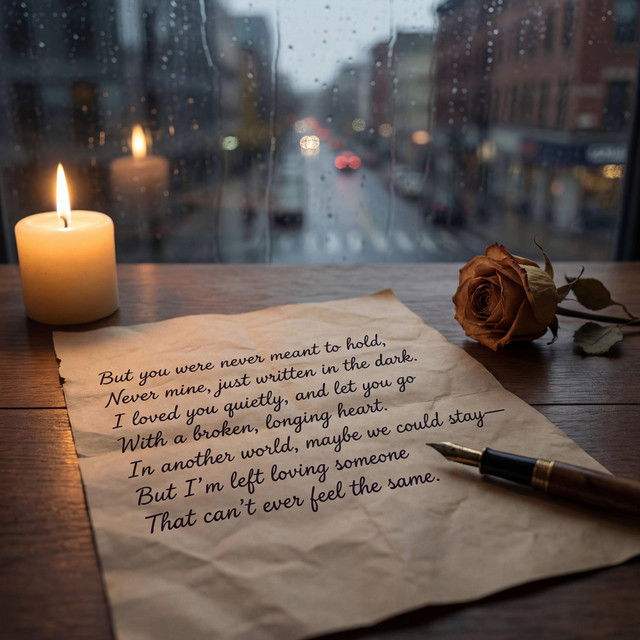 But you were never meant to hold,
Never mine, just written in the dark.
I loved you quietly, and let you go
With a broken, longing heart.
In another world, maybe we could stay—
But I'm left loving someone
That can't ever feel the same.